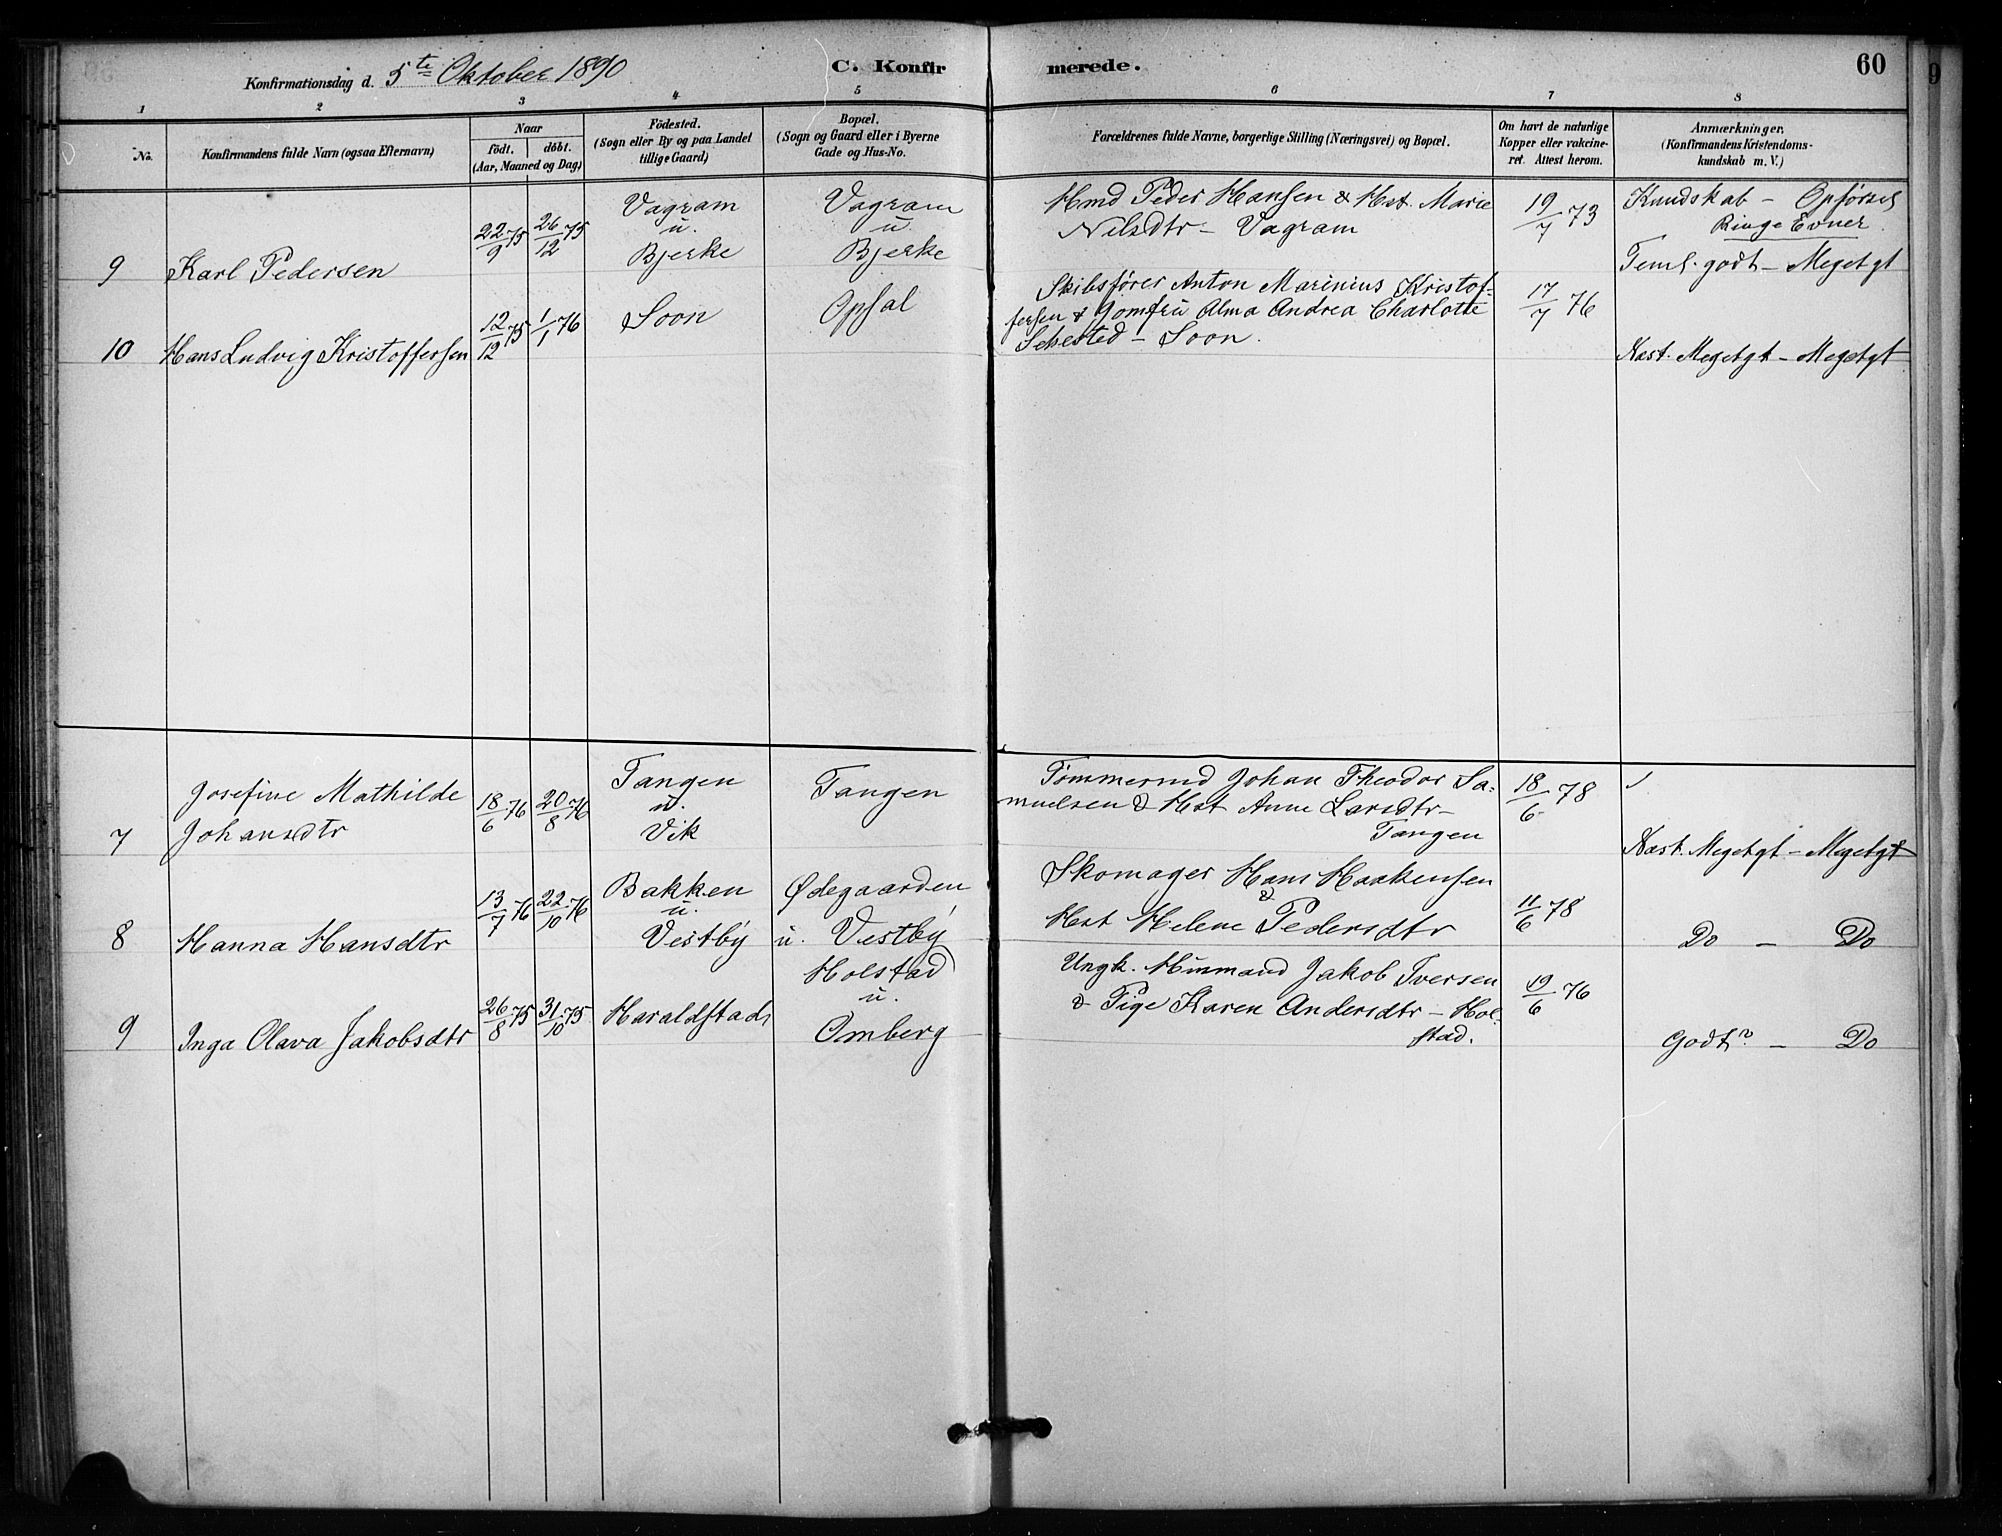 Konfirmationsdag d. 5te Oktober 1890
C. Konfirmerede.
60
1 2 3 4 5 6 7 8
No.
Konfirmandens fulde Navn (ogsaa Efternavn)
Naar
födt. döbt.
(Aar, Maaned og Dag)
Födested.
(Sogn eller By og paa Landet
tillige Gaard)
Bopæl.
(Sogn og Gaard eller i Byerne
Gade og Hus-No.
Forældrenes fulde Navne, borgerlige Stilling (Næringsvei) og Bopæl.
Om havt de naturlige
Kopper eller vakcine-
ret. Attest herom.
Anmærkninger.
(Konfirmandens Kristendoms-
kundskab m. V.)
9
Karl Pedersen
22/9 75
26/12 75
Vagram
u.
Bjerke
Vagram
u.
Bjerke
Hmd Peder Hansen & Hst. Marie
Nilsdtr – Vagram
19/7 73
Kundskab – Opförsel
Ringe Evner
Teml. godt – Megetgt
10
Hans Ludvig Kristoffersen
12/12 75
1/1 76
Soon
Opsal
Skibsförer Anton Marinius Kristof-
fersen & Jomfru Alma Andrea Charlotte
Sehested – Soon.
17/7 76
Næst. Megetgt – Megetgt
7
Josefine Mathilde
Johansdtr
18/6 76
20/8 76
Tangen
u.
Vik
Tangen
Tømmermd Johan Theodor Sa-
muelsen & Hst Anne Larsdtr –
Tangen
18/6 78
Næst. Megetgt – Megetgt
8
Hanna Hansdtr
13/7 76
22/10 76
Bakken
u.
Vestby
Ødegaarden
u. Vestby
Skomager Hans Haakensen
&
Hst Helene Pedersdtr
11/6 78
Do – Do
9
Inga Olava Jakobsdtr
26/8 75
31/10 75
Haraldstad
Holstad
u.
Omberg
Ungk. Husmand Jakob Iversen
& Pige Karen Andersdtr – Hol-
stad.
19/6 76
Godt? – Do
9